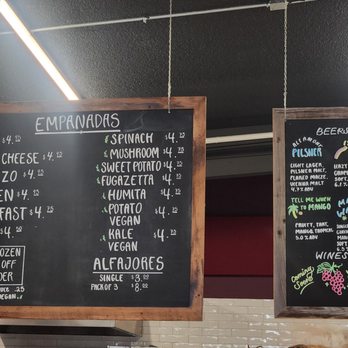 EMPANADAS
$4.75
CHEESE $4.75
ZO $4.75
EN $4.75
FAST $4.75
OZEN
OFF
DER
SPINACH $4.75
MUSHROOM $4.75
SWEET POTATO $4.75
FUGAZETTA $4.75
HUMITA $4.75
POTATO
VEGAN $4.75
KALE
VEGAN $4.75
ALFAJORES
SINGLE $3.00
PACK OF 3 $8.00
BEER
PILSNER
LIGHT LAGER,
PILSNER MALT,
4.7% ABV
TELL ME WHEN
TO MANGO
FRUITY, TART,
MANGO, TROPICAL
5.0% ABV
WINES
Coming
Soon